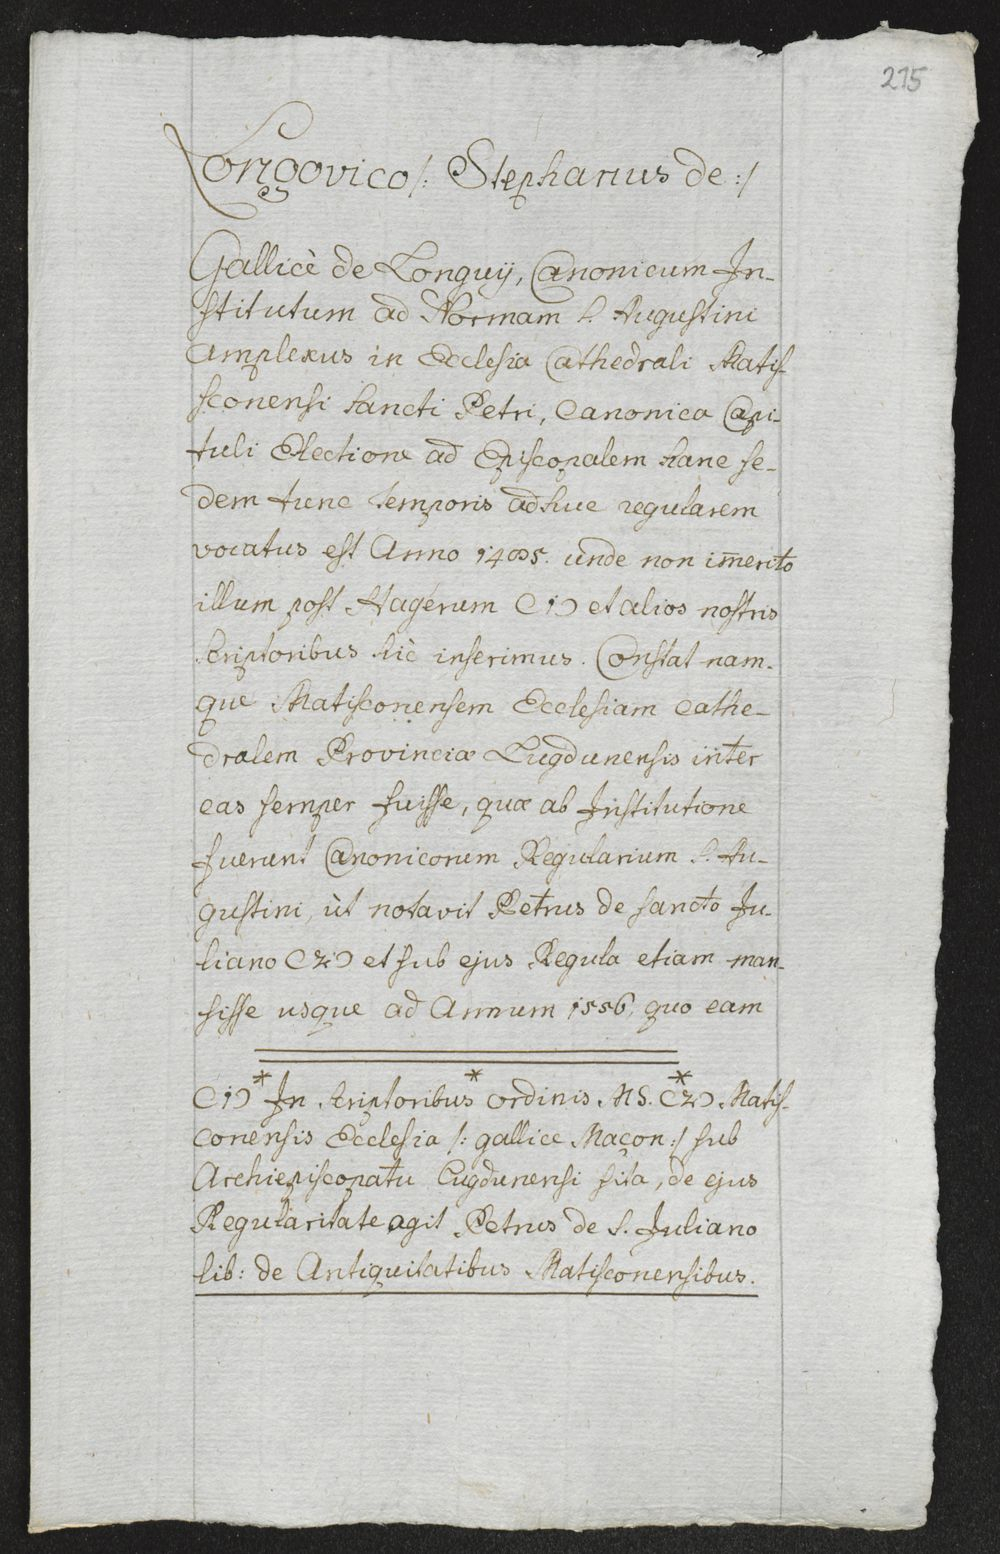 215
Longovico /: Stephanus de :/
Gallicè de Longuÿ, Canonicum In-
stitutum ad Normam S. Augustini
amplexus in Ecclesia Cathedrali Matis-
sconensi Sancti Petri, Canonica Capi-
tuli Electione ad Episcopalem hanc se-
dem tunc temporis adhuc regularem
vocatus est Anno 1485. unde non im̅erito
illum post Hagerum (1) et alios nostris
Scriptoribus hîc inserimus. Constat nam-
que Matisconensem Ecclesiam cathe-
dralem Provinciæ Lugdunensis inter
eas semper fuisse, quæ ab Institutione
fuerunt Canonicorum Regularium S. Au-
gustini, ùt notavit Petrus de sancto Ju-
liano (2) et sub ejus Regula etiam man-
sisse usque ad Annum 1556, quo eam
(1)* In Scriptoribus* ordinis MS. (2)* Matis-
conensis Ecclesia /: gallice Maçon :/ sub
Archiepiscopatu Lugdunensi sita, de ejus
Regularitate agit Petrus de S. Juliano
lib: de Antiquitatibus Matisconensibus.